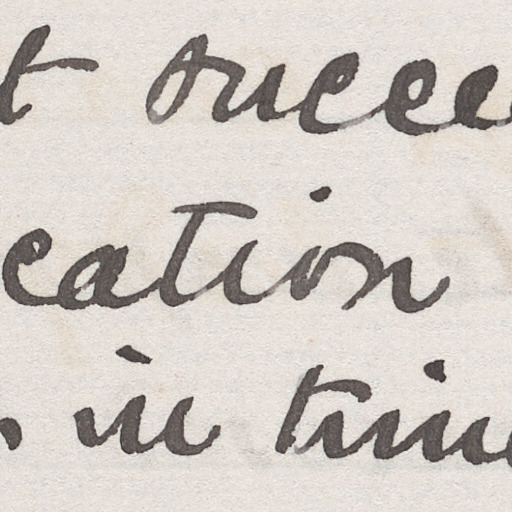 t succee
cation
in time